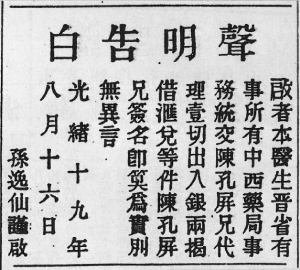 聲明告白
敬者本醫生晋省有
事所有中西藥局事
務統交陳孔屏兄代
理壹切出入銀兩揭
借滙兌等件陳孔屏
兄簽名卽筭爲實別
無異言
光緒十九年
八月十六日
孫逸仙謹啟